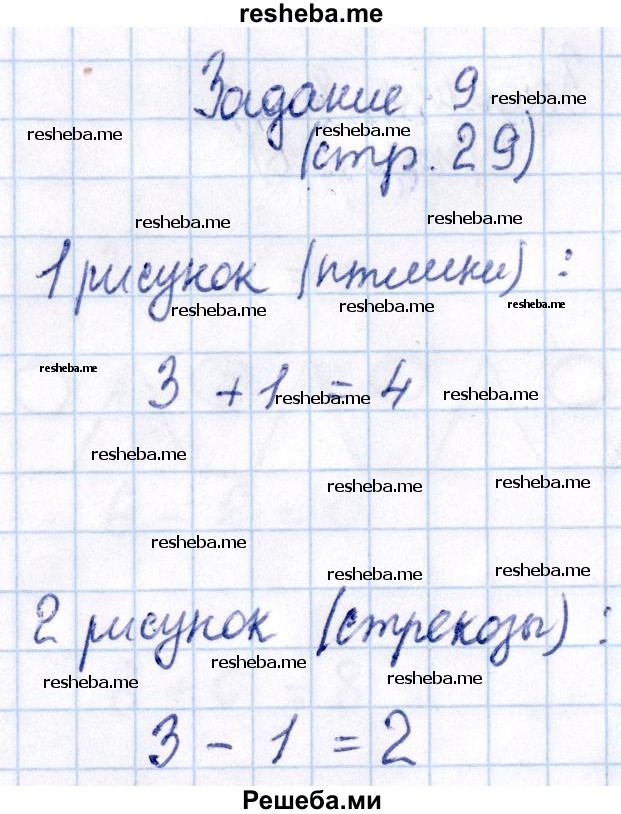 resheba.me
Задание 9 resheba.me
resheba.me resheba.me
(стр. 29)
resheba.me resheba.me
1 рисунок (птички) :
resheba.me resheba.me resheba.me
resheba.me
3 + 1 = 4
resheba.me resheba.me
resheba.me
resheba.me resheba.me
resheba.me
resheba.me resheba.me
2 рисунок (стрекозы) :
resheba.me resheba.me resheba.me
3 - 1 = 2
Решеба.ми